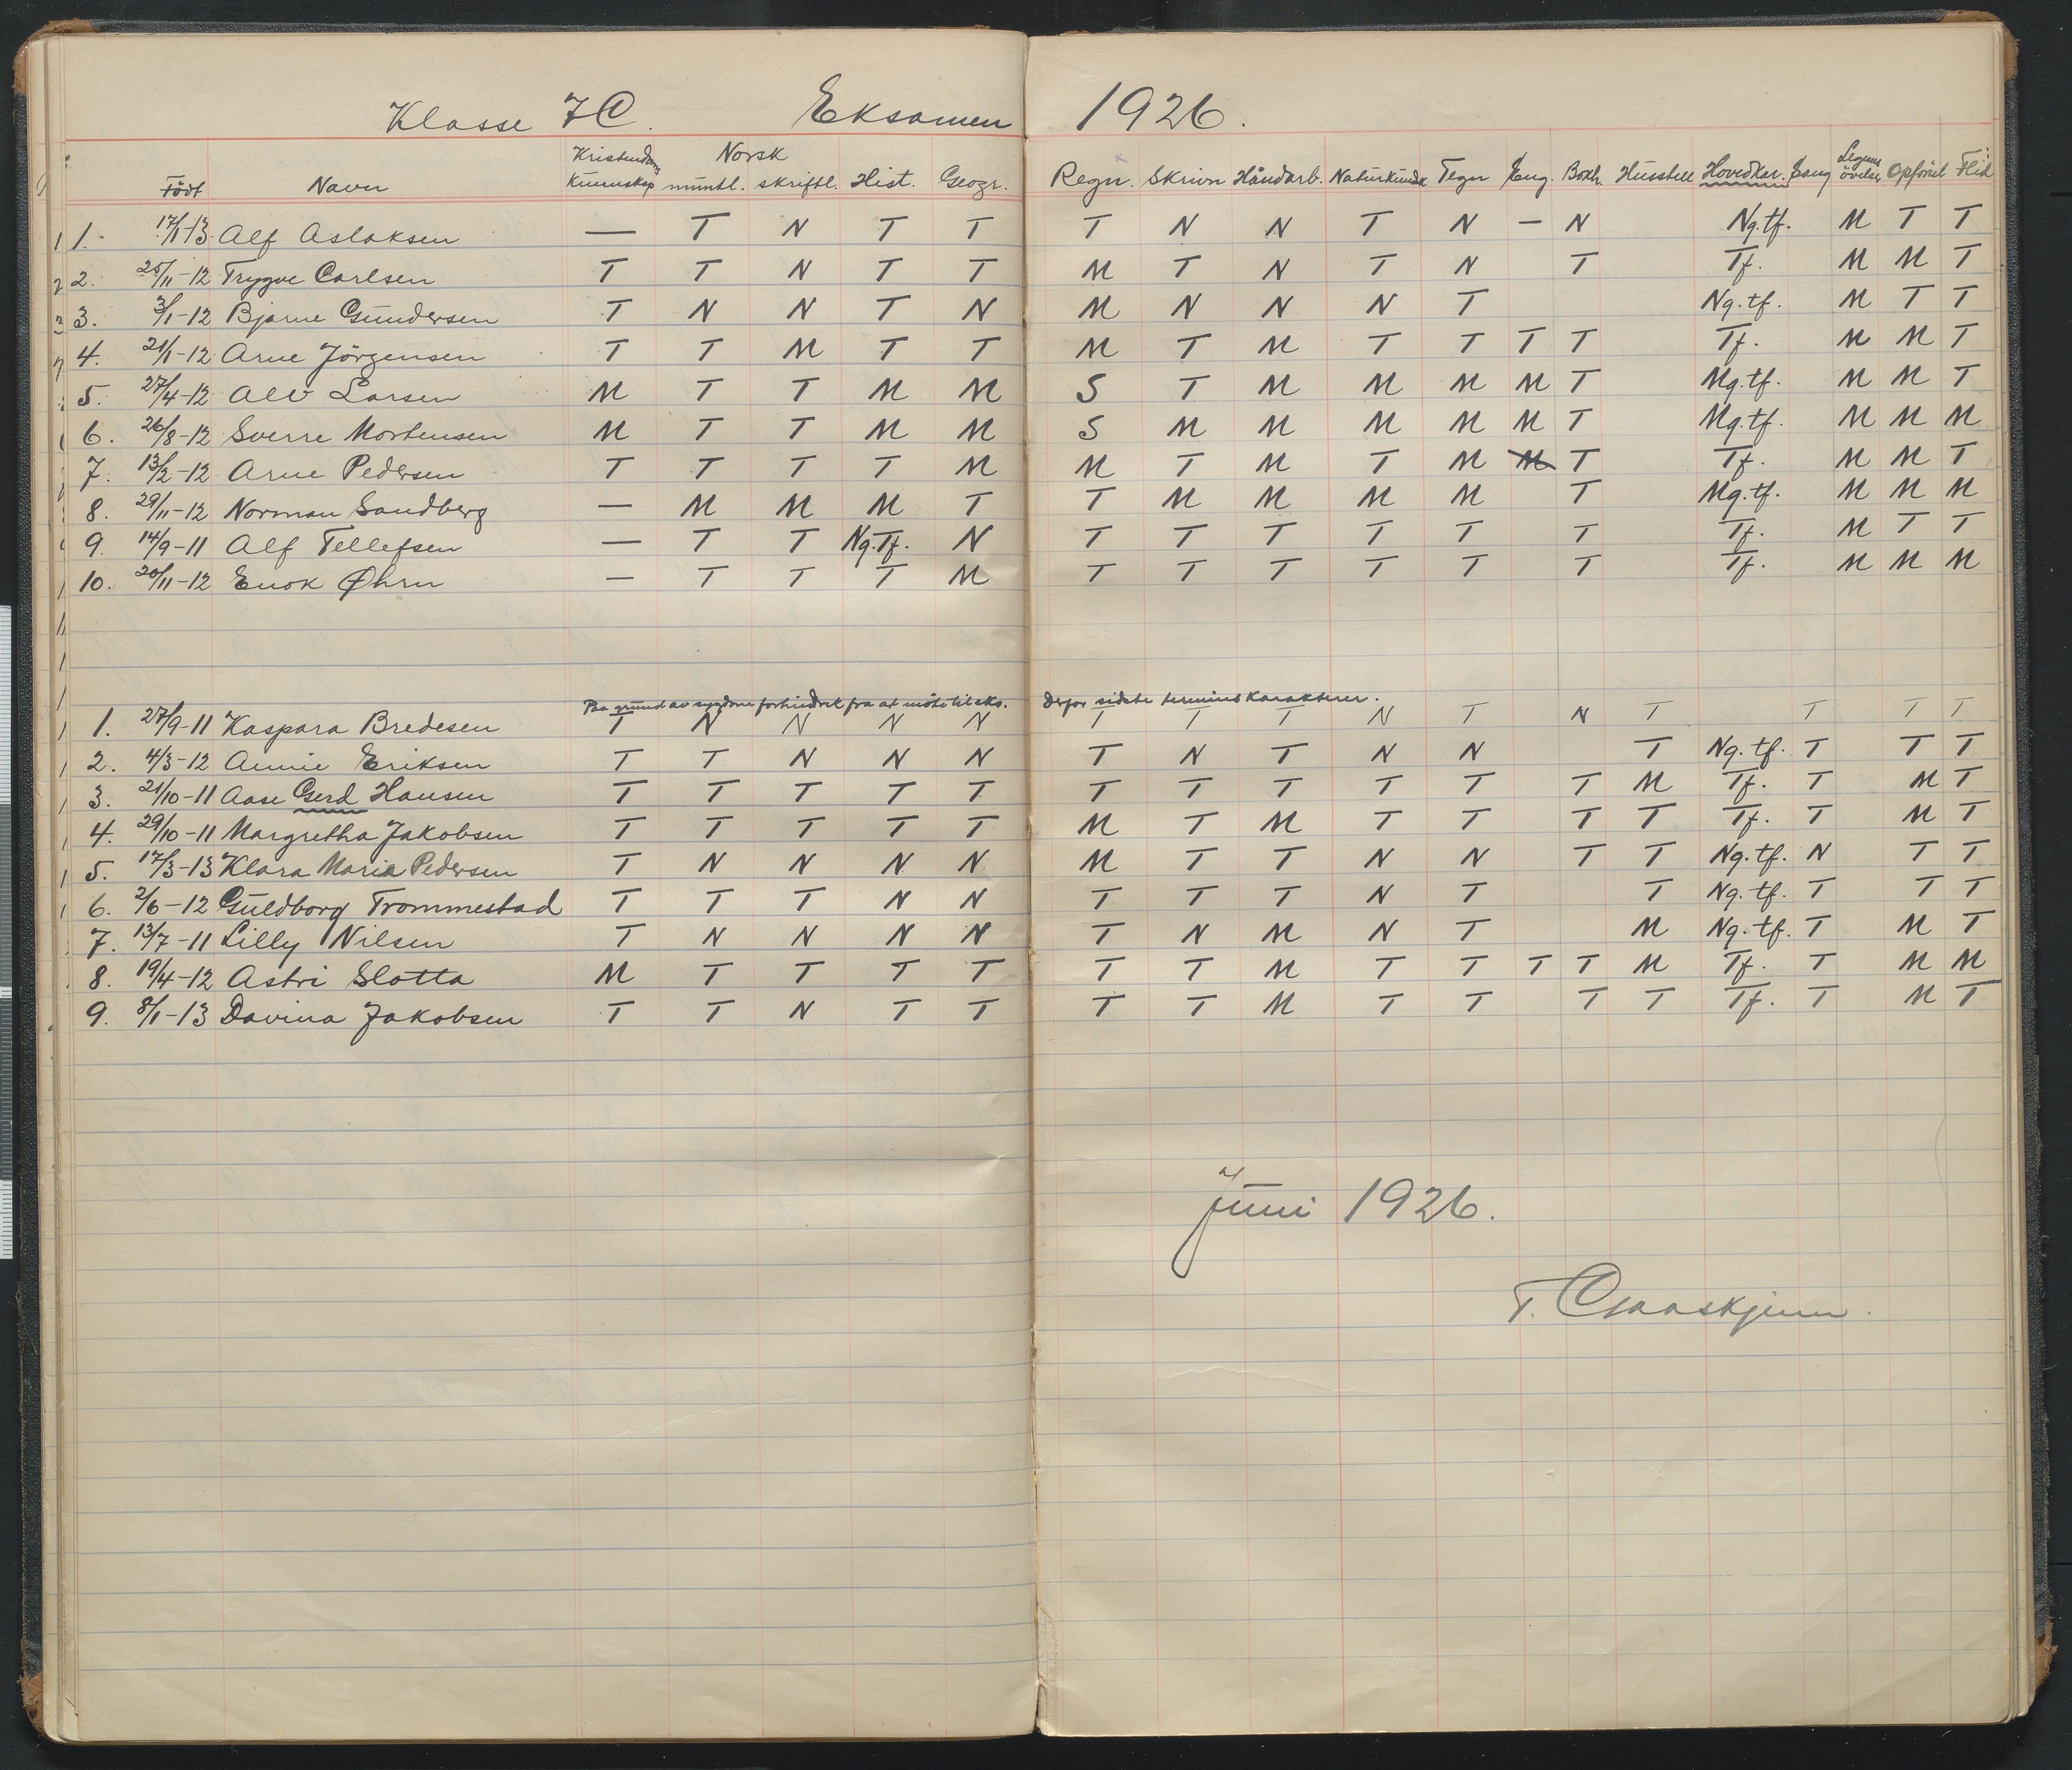 Klasse 7C. Eksamen 1926.
Født Navn Kristendoms kunnskap Norsk muntl. skriftl. Hist. Geogr. Regn. Skrivn Håndarb. Naturkunds Tegn Eng. Bokh. Husstell Hovedkar. Sang Legems övelser Opförsel Flid
1. 17/1-13 Alf Aslaksen — T N T T T N N T N — N Ng.tf. M T T
2. 25/11-12 Trygve Carlsen T T N T T M T N T N T Tf. M M T
3. 3/1-12 Bjarne Gundersen T N N T N M N N N T Ng.tf. M T T
4. 21/1-12 Arne Jörgensen T T M T T M T M T T T T Tf. M M T
5. 27/4-12 Alv Larsen M T T M M S T M M M M T Mg.tf. M M T
6. 26/8-12 Sverre Mortensen M T T M M S M M M M M T Mg.tf. M M M
7. 13/2-12 Arne Pedersen T T T T M M T M T M M T Tf. M M T
8. 29/11-12 Norman Sandberg — M M M T T M M M M T Mg.tf. M M M
9. 14/9-11 Alf Tellefsen — T T Ng.Tf. N T T T T T T Tf. M T T
10. 20/11-12 Enok Øhrn — T T T M T T T T T T Tf. M M M
Paa grund av sygdom forhindret fra at möte til eks. Derfor sidste termins karakterer.
1. 27/9-11 Kaspara Bredesen T N N N N T T T N T N T T T T
2. 4/3-12 Annie Eriksen T T N N N T N T N N T Ng.tf. T T T
3. 21/10-11 Aase Gerd Hansen T T T T T T T T T T T M Tf. T M T
4. 29/10-11 Margretha Jakobsen T T T T T M T M T T T T Tf. T M T
5. 17/3-13 Klara Marie Pedersen T N N N N M T T N N T T Ng.tf. N T T
6. 2/6-12 Guldborg Trommestad T T T N N T T T N T T Ng.tf. T T T
7. 13/7-11 Lilly Nilsen T N N N N T N M N T M Ng.tf. T M T
8. 19/4-12 Astri Slotta M T T T T T T M T T T T M Tf. T M M
9. 8/1-13 Davina Jakobsen T T N T T T T M T T T T Tf. T M T
Juni 1926.
T.